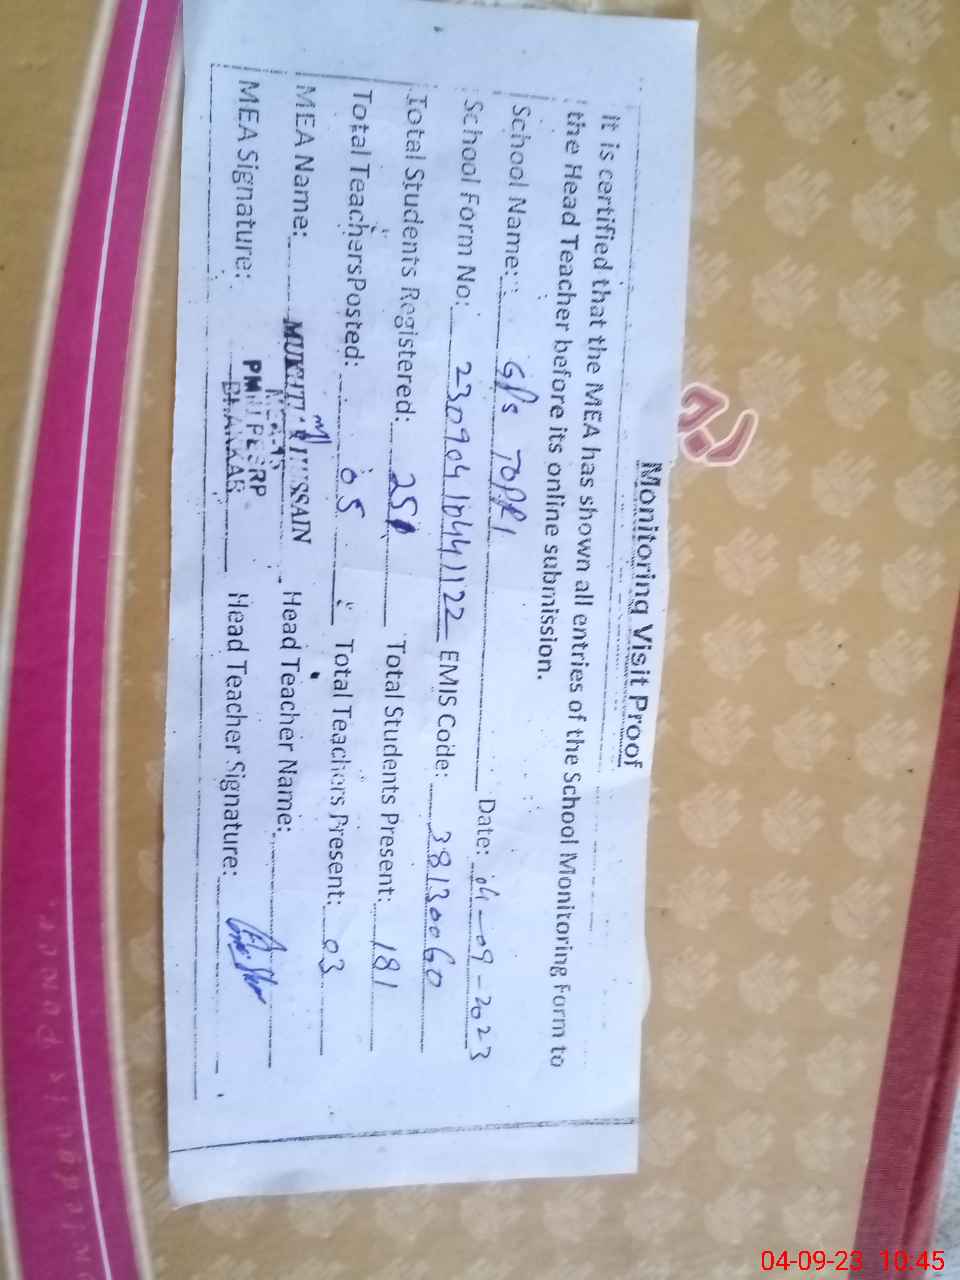 Monitoring Visit Proof
It is certified that the MEA has shown all entries of the School Monitoring Form to
the Head Teacher before its online submission.
School Name: G/s TOPRI Date: 04-09-2023
School Form No: EMIS Code: 38130060
Total Students Registered: 251 Total Students Present: 181
Total Teachers Posted: 05 Total Teachers Present: 03
MEA Name: MUKHTI HUSSAIN Head Teacher Name:
MEA-45
MEA Signature: Head Teacher Signature:
BHAKKAR
04-09-23 10:45